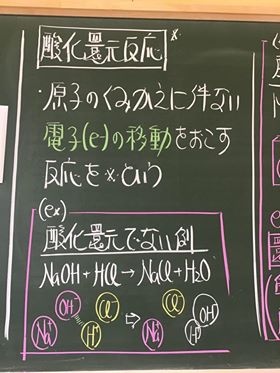 酸化還元反応 *
・原子のくみかえに伴ない
電子(e)の移動をおこす
反応を*という
(ex)
酸化還元でない例
NaOH + HCl → NaCl + H₂O
OH⁻ Cl⁻ ⇨ Cl⁻ OH
Na⁺ H⁺ Na⁺ H